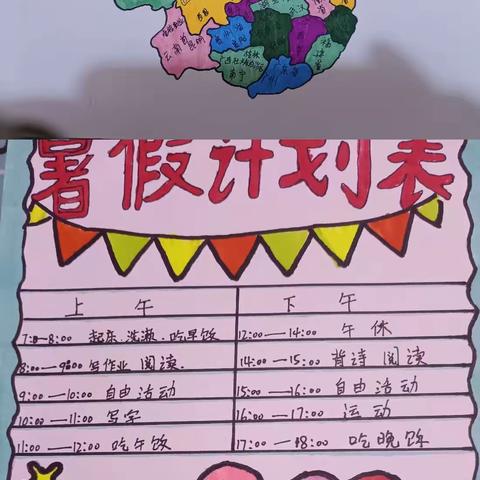 云南省
昆明
贵州省
南宁
广东省
暑假计划表
上 午
下 午
7:00—8:00 起床.洗漱.吃早饭
12:00—14:00 午休
8:00—9:00 写作业 阅读.
14:00—15:00 背诗 阅读
9:00—10:00 自由活动
15:00—16:00 自由活动
10:00—11:00 写字
16:00—17:00 运动
11:00—12:00 吃午饭
17:00—18:00 吃晚饭